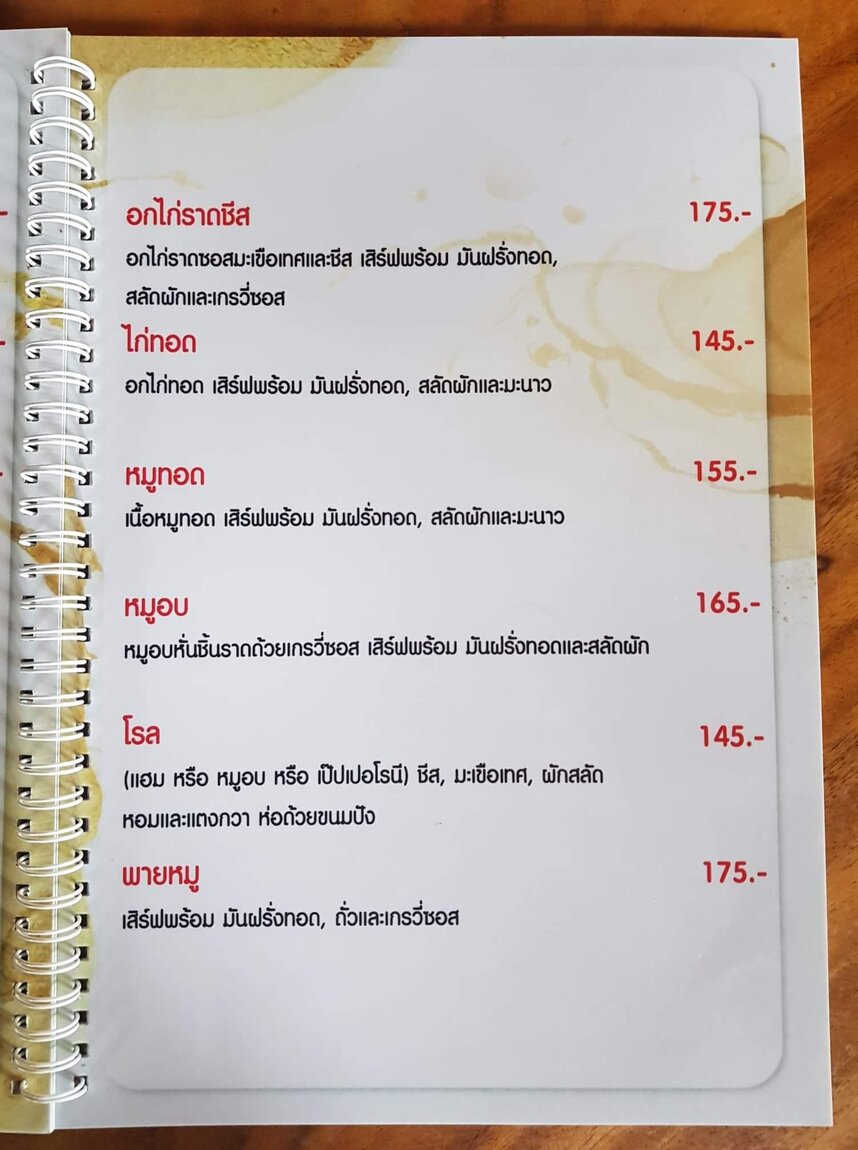 อกไก่ราดชีส 175.-
อกไก่ราดซอสมะเขือเทศและชีส เสิร์ฟพร้อม มันฝรั่งทอด,
สลัดผักและเกรวี่ซอส
ไก่ทอด 145.-
อกไก่ทอด เสิร์ฟพร้อม มันฝรั่งทอด, สลัดผักและมะนาว
หมูทอด 155.-
เนื้อหมูทอด เสิร์ฟพร้อม มันฝรั่งทอด, สลัดผักและมะนาว
หมูอบ 165.-
หมูอบหั่นชิ้นราดด้วยเกรวี่ซอส เสิร์ฟพร้อม มันฝรั่งทอดและสลัดผัก
โรล 145.-
(แฮม หรือ หมูอบ หรือ เป๊ปเปอโรนี) ชีส, มะเขือเทศ, ผักสลัด
หอมและแตงกวา ห่อด้วยขนมปัง
พายหมู 175.-
เสิร์ฟพร้อม มันฝรั่งทอด, ถั่วและเกรวี่ซอส